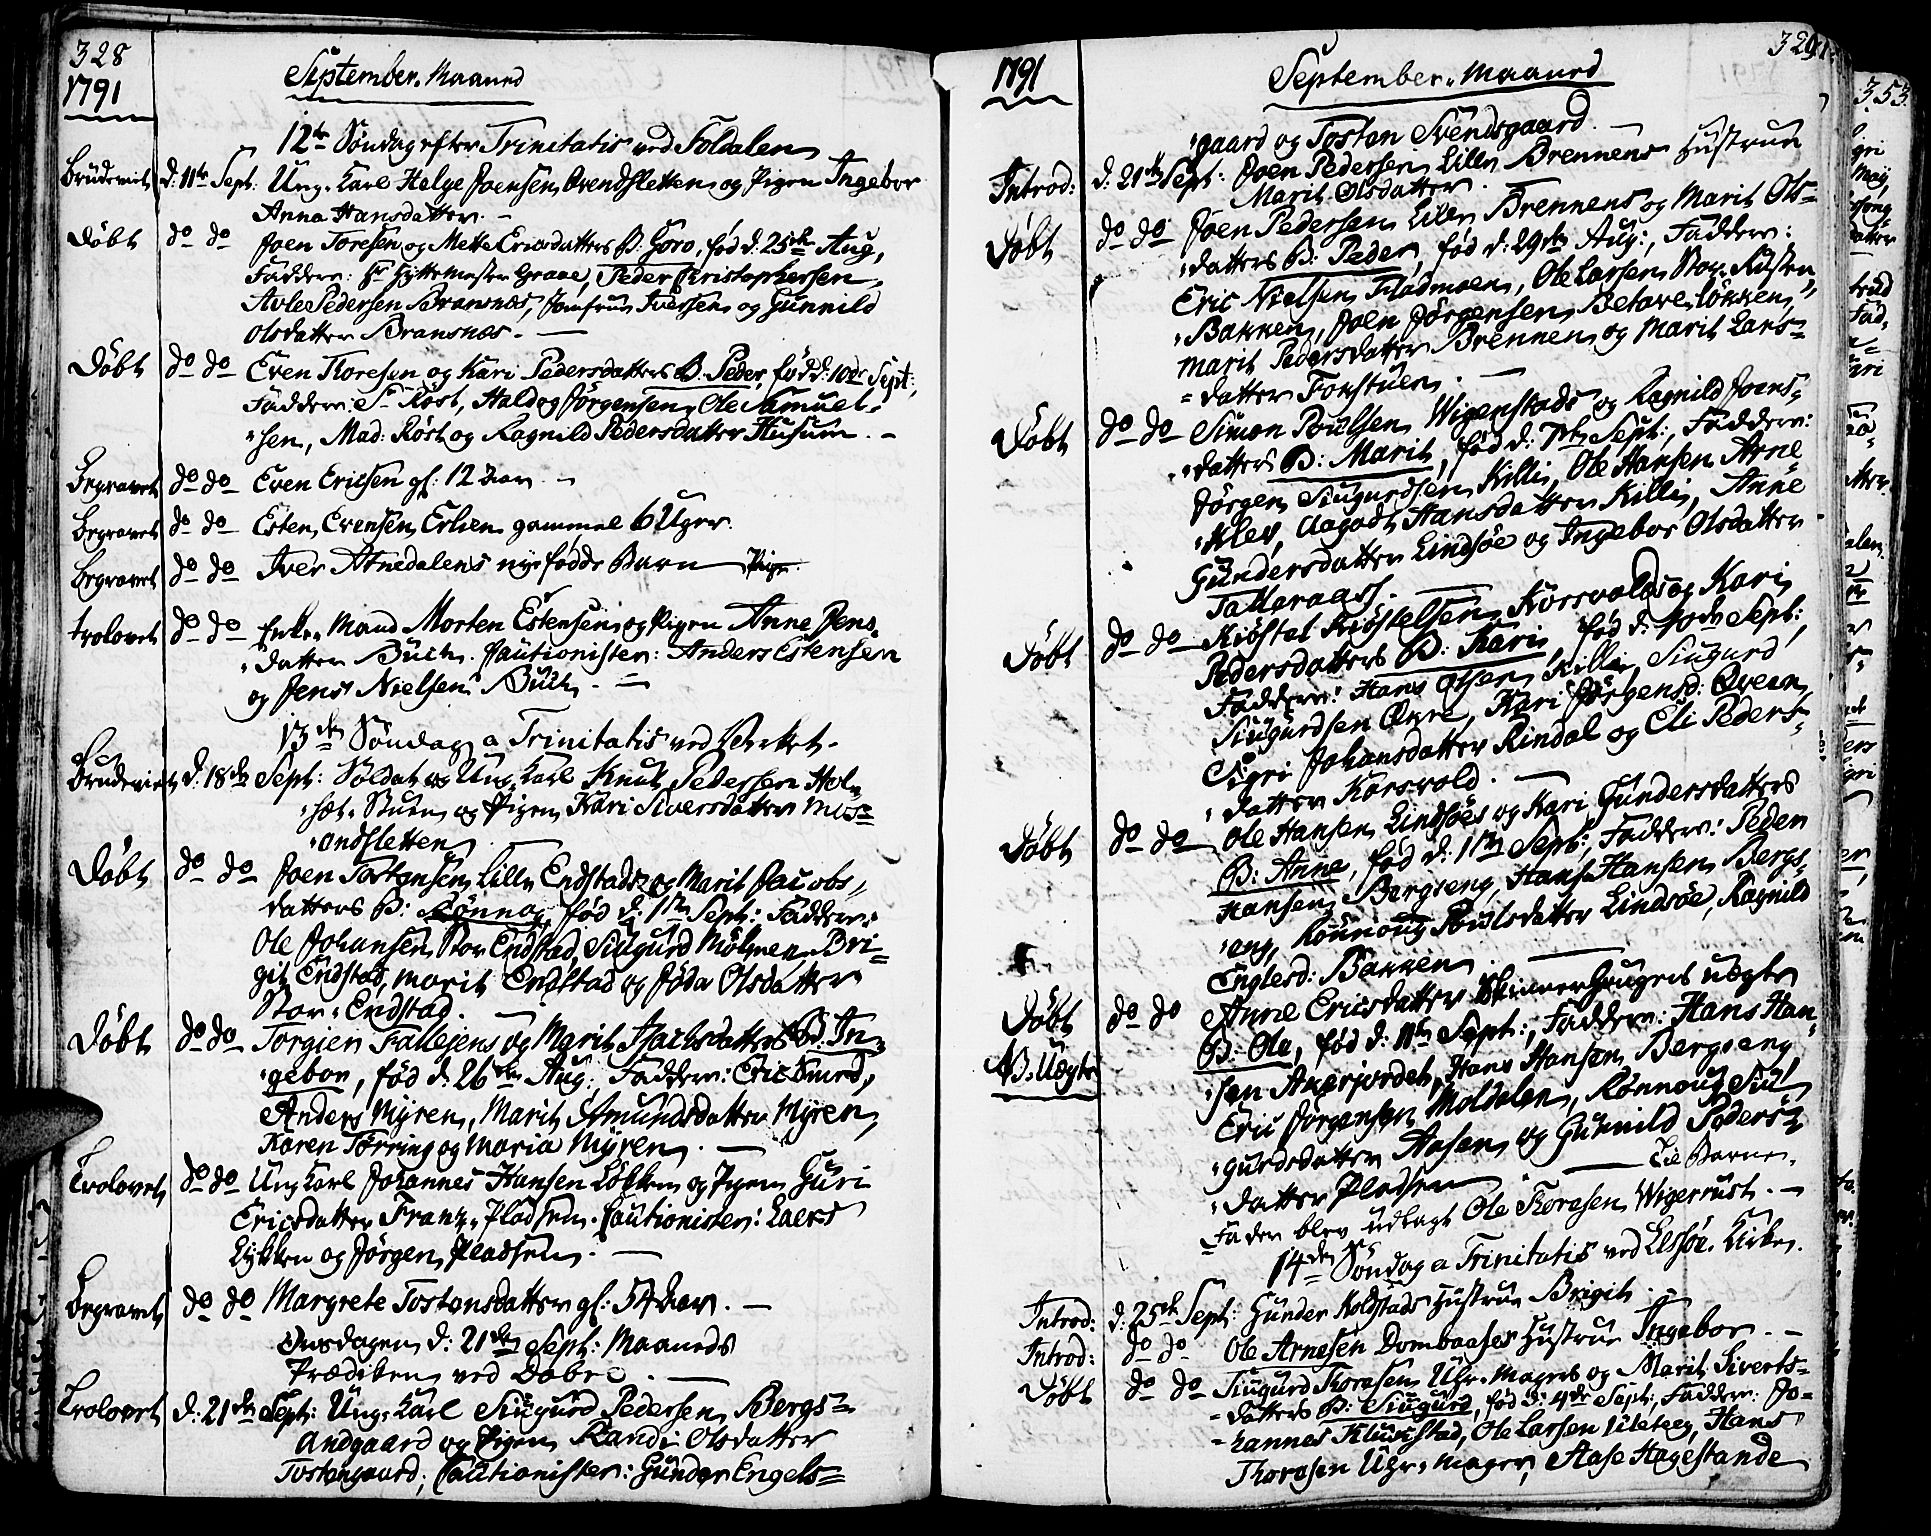 328
1791
September Maaned
12te Søndag efter Trinitatis ved Foldalen
Brudeviet d: 11te Sept: Ung-Karl Helge Joensen Brendsletten og Pigen Ingebor
Anna Hansdatter. -
Døbt do do Joen Toresen og Mette Ericsdatters B: Goro, fød d: 25de Aug,
Faddere: Hr Hyttemester Graae, Peder Christophersen,
Avle Pedersen Bransnæs, Jomfru Iversen og Gunnild
Olsdatter Bransnæs. -
Døbt do do Even Thoresen og Kari Pedersdatters B. Peder, fød d: 10de Sept:,
Faddere: Sr Røst, Haldog Jørgensen, Ole Samuel-
"sen, Mad: Røst og Ragnild Pedersdatter Husum. -
Begravet do do Even Ericsen gl: 12 Aar. -
Begravet do do Esten Evensen Erlien gammel 6 Uger.
Begravet do do Iver Atnedalens nye fødde Barn Pige
trolovet do do Enke-Mand Morten Estensen og Pigen Anne Jens-
"datter Buch. Cautionister: Anders Estensen
og Jens Nielsen Buch. -
13de Søndag a Trinitatis ved Verket.
Brudeviet d: 18de Sept: Soldat og Ung-Karl Knut Pedersen Hol-
"set-Stuen og Pigen Kari Siversdatter Mos-
"andsletten
Døbt do do Joen Tostensen Lille Endstads og Marit Jacobs-
datters B: Rønnog, fød d: 1ste Sept: Faddere:
Ole Johansen Stor Endstad, Siugurd Mølmen, Bri-
git Endstad, Marit Endstad og Jøda Olsdatter
Stor-Endstad. -
Døbt do do Torgien Fallejens og Marit Jachsdatters B. In-
"gebor, fød d: 26de Aug: Faddere: Eric Smed,
Anders Myren, Marit Amundsdatter Myren,
Karen Tørring og Maria Myren. -
Trolovet do do Ung Karl Johannes Hansen Løkken og Pigen Guri
Ericsdatter Franz-Pladsen. Cautionister: Laers
Løkken og Jørgen Pladsen. -
Begravet do do Margrete Tostensdatter gl: 54 Aar. -
Onsdagen d: 21de Sept: Maaneds
Prædiken ved Dovre. -
Trolovet d: 21de Sept: Ung-Karl Siugurd Pedersen Bergs-
andgaard og Pigen Randi Olsdatter
Tostengaard; Cautionister: Gunder Engels-
1791
September Maaned
329
"gaard og Tosten Svendsgaard. -
Introd: d: 21de Sept: Joen Pedersen Lille Brennens Hustrue
Marit Olsdatter.
Døbt do do Joen Pedersen Lille Brennens og Marit Ols-
"datters B: Peder, fød d: 29de Aug:, Faddere:
Eric Nielsen Fladmoen, Ole Larsen Stor-Rusten
"Bakken, Joen Jørgensen Betaveløkken,
Marit Pedersdatter Brennen og Marit Lars-
"datter Fonstuen. -
Døbt do do Simon Poulsen Wigenstads og Ragnild Joens-
"datters B: Marit, fød d: 7de Sept:, Faddere:
Jørgen Siugurdsen Killi, Ole Hansen Arne
"Klev, Aagodt Hansdatter Killi, Anne
Gundersdatter Lindsøe og Ingebor Olsdatter
Talleraass. -
Døbt do do Kiøstel Kiøstelsen Korsvolds og Kari
Pedersdatters B: Kari, fød d: 10de Sept:,
Faddere: Hans Olsen Killi, Siugurd
Siugurdsen Øvre, Kari Jørgensd: Qveen,
Sigri Johansdatter Rindal og Eli Peders-
"datter Korsvold. -
Døbt do do Ole Hansen Lindsøes og Kari Gundersdatters
B: Anne, fød d: 1ste Sept:, Faddere: Peder
Hansen Bergseng, Hans Hansen Bergs-
"eng, Rønnoug Poulsdatter Lindsøe, Ragnild
Englesd: Bakken. -
Døbt do do Anne Ericsdatter Skinner Haugens uægte
B: Ole, fød d: 11te Sept:, Faddere: Hans Han-
B: Uægte "sen Akerjordet, Hans Hansen Bergseng,
Eric Jørgensen Moldalen, Rønnoug Siu-
"gurdsdatter Aasen og Gunnild Peders-
"datter Pladsen. - Til Barne-
Fader blev udlagt Ole Thoresen Wigerrust. -
14de Søndag a Trinitatis ved Lessøe Kirke.
Introd: d: 25de Sept: Gunder Holdstads Hustrue Brigit. -
Introd: do do Ole Arnesen Dombaases Hustrue Ingebor. -
Døbt do do Siugurd Thoresen Uhr-Magers og Marit Siverts-
"datters B: Siugurd, fød d: 4de Sept:, Faddere: Jo-
"hannes Klunstad, Ole Larsen Lileteeg, Hans
Thoresen Uhr-Mager, Aase Hagestande
353